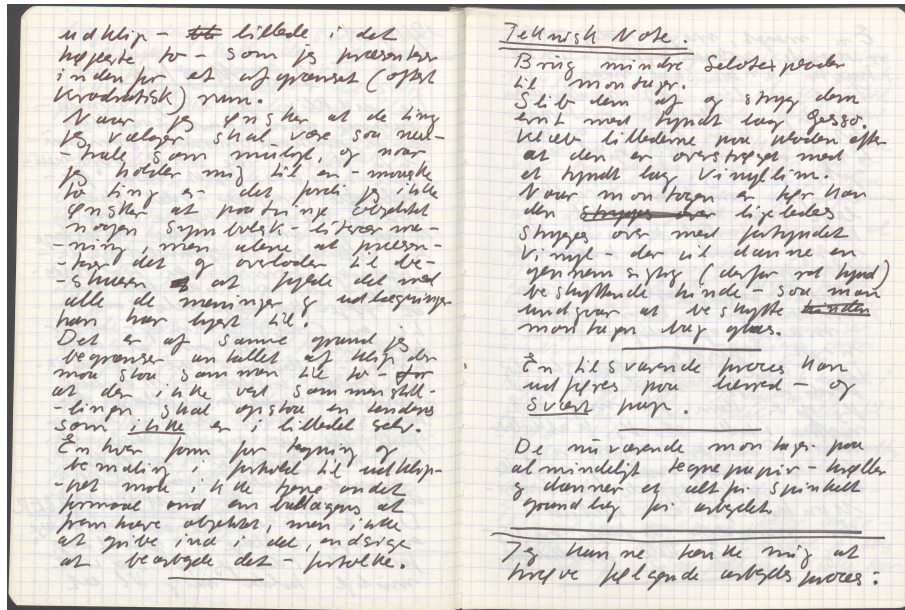 udklip – billede i det
højeste to – som jeg præsenterer
inden for et afgrænset (oftest
kvadratisk) rum.
Naar jeg ønsker at de ting
jeg vælger skal være saa neu-
-trale som muligt, og naar
jeg holder mig til en – maaske
to ting er det fordi jeg ikke
ønsker at paatvinge objektet
nogen symbolsk – litterær me-
-ning, men alene at præsen-
-tere det og overlader til be-
-skueren at fylde det med
alle de meninger og udlægninger
han har lyst til.
Det er af samme grund jeg
begrænser antallet af klip der
maa staa sammen til to – for
at der ikke ved sammenstil-
-lingen skal opstaa en tendens
som ikke er i billedet selv.
En hver form for tegning og
bemaling i forhold til udklip-
-pet maa ikke tjene andet
formaal end em ballagens at
fremhæve objektet, men ikke
at gribe ind i det, endsige
at bearbejde det – fortolke.
Teknisk Note.
Brug mindre Selotexplader
til montager.
Slib dem af og stryg dem
evnt med tyndt lag Gesso.
Klæbe billederne paa pladen efter
at den er overstrøget med
et tyndt lag Vinyllim.
Naar montagen er tør kan
den stryges over ligeledes
stryges over med fortyndet
Vinyl – der vil danne en
gennemsigtig (derfor ret tynd)
beskyttende hinde – som man
undgaar at beskytte hinden
montagen bag glas.
En tilsvarende proces kan
udføres paa lærred – og
svært pap.
De nuværende montager paa
almindeligt tegnepapir –
og danner et alt for spinkelt
grundlag for arbejdet.
Jeg kunne tænke mig at
prøve følgende arbejdsproces: